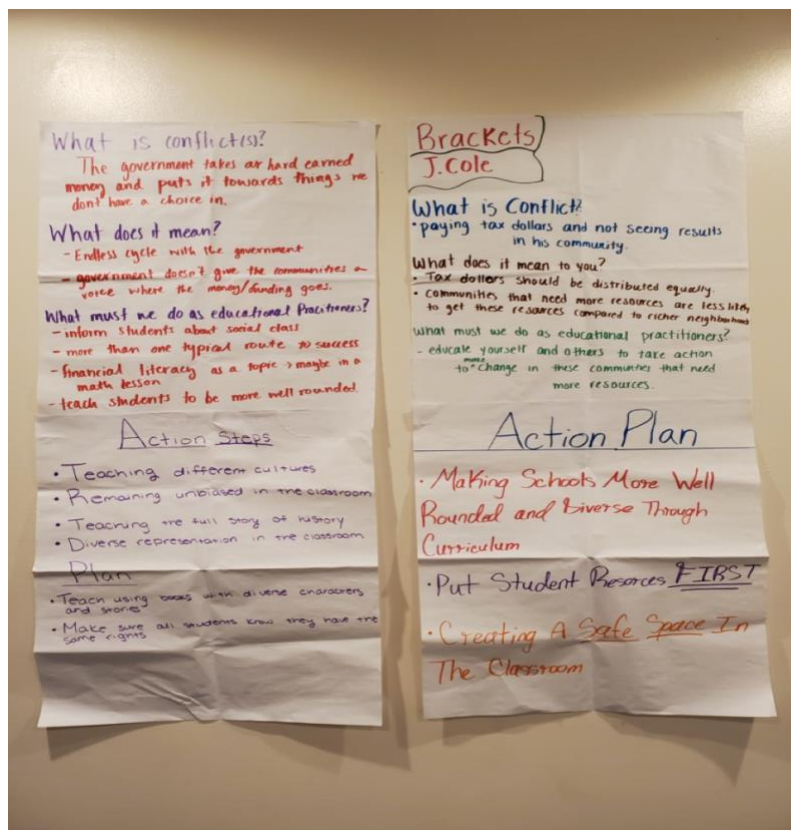 What is conflict(s)?
The government takes ar hard earned
money and puts it towards things we
dont have a choice in.
What does it mean?
- Endless cycle with the government
- government doesn't give the communities a
voice where the money/funding goes.
What must we do as educational Practitioners?
- inform students about social class
- more than one typical route to success
- financial literacy as a topic → maybe in a
math lesson
- teach students to be more well rounded.
Action Steps
• Teaching different cultures
• Remaining unbiased in the classroom
• Teaching the full story of history
• Diverse representation in the classroom
Plan
• Teach using books with diverse characters
and stories
• Make sure all students know they have the
same rights
Brackets
J. Cole
What is Conflict?
• paying tax dollars and not seeing results
in his community.
What does it mean to you?
• Tax dollars should be distributed equally.
• Communities that need more resources are less likely
to get these resources compared to richer neighborhoods
What must we do as educational practitioners?
- educate yourself and others to take action
to make change in these communities that need
more resources.
Action Plan
• Making Schools More Well
Rounded and Diverse Through
Curriculum
• Put Student Resorces FIRST
• Creating A Safe Space In
The Classroom